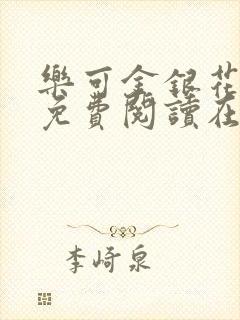 樂可金銀花
免費閱讀在
李崎泉